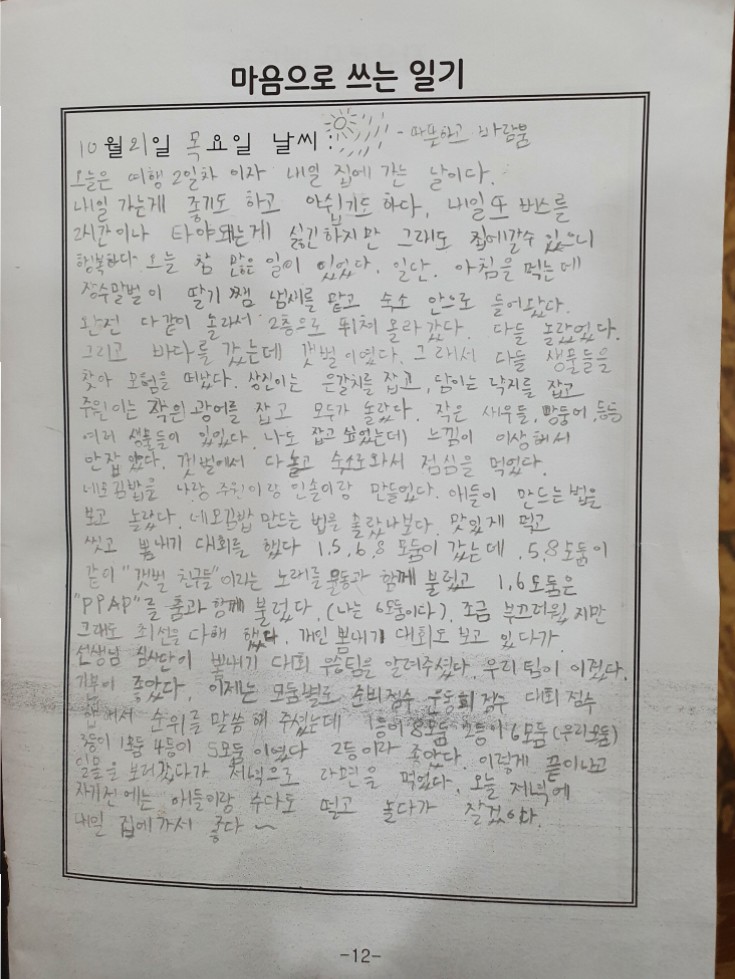 마음으로 쓰는 일기
10월 21일 목요일 날씨 : - 따뜻하고 바람붐
오늘은 여행 2일차 이자 내일 집에 가는 날이다.
내일 가는게 좋기도 하고 아쉽기도 하다. 내일 또 버스를
2시간이나 타야돼는게 싫긴하지만 그래도 집에갈수 있으니
행복하다. 오늘 참 많은 일이 있었다. 일단. 아침을 먹는데
장수말벌이 딸기쨈 냄새를 맡고 숙소 안으로 들어왔다.
완전 다같이 놀라서 2층으로 뛰쳐 올라갔다. 다들 놀랐었다.
그리고 바다를 갔는데 갯벌이였다. 그래서 다들 생물들을
찾아 모험을 떠났다. 상진이는 은갈치를 잡고, 담이는 낙지를 잡고
주원이는 작은 광어를 잡고 모두가 놀랐다. 작은 새우들, 짱둥어, 등등
여러 생물들이 있었다. 나도 잡고 싶었는데 느낌이 이상해서
안잡았다. 갯벌에서 다 놀고 숙소로와서 점심을 먹었다.
네모김밥을 나랑 주원이랑 인솔이랑 만들었다. 애들이 만드는법을
보고 놀랐다. 네모김밥 만드는 법을 몰랐나보다. 맛있게 먹고
씻고 뽐내기 대회를 했다 1,5,6,8 모둠이 갔는데 5,8모둠이
같이 "갯벌 친구들"이라는 노래를 율동과 함께 불렀고 1,6모둠은
"PPAP"를 춤과 함께 불렀다. (나는 6모둠이다). 조금 부끄러웠지만
그래도 최선을 다해 했다. 개인 뽐내기 대회도 보고 있다가
선생님 심사단이 뽐내기 대회 우승팀을 알려주셨다. 우리팀이 이겼다.
기분이 좋았다. 이제는 모둠별로 준비점수 운동회 점수 대회 점수
합해서 순위를 말씀해 주셨는데 1등이 8모둠 2등이 6모둠 (우리모둠)
3등이 1모둠 4등이 5모둠 이였다 2등이라 좋았다. 이렇게 끝이나고
일몰을 보러갔다가 저녁으로 라면을 먹었다. 오늘 저녁에
자기전에는 애들이랑 수다도 떨고 놀다가 잘것이다.
내일 집에가서 좋다 ~
-12-